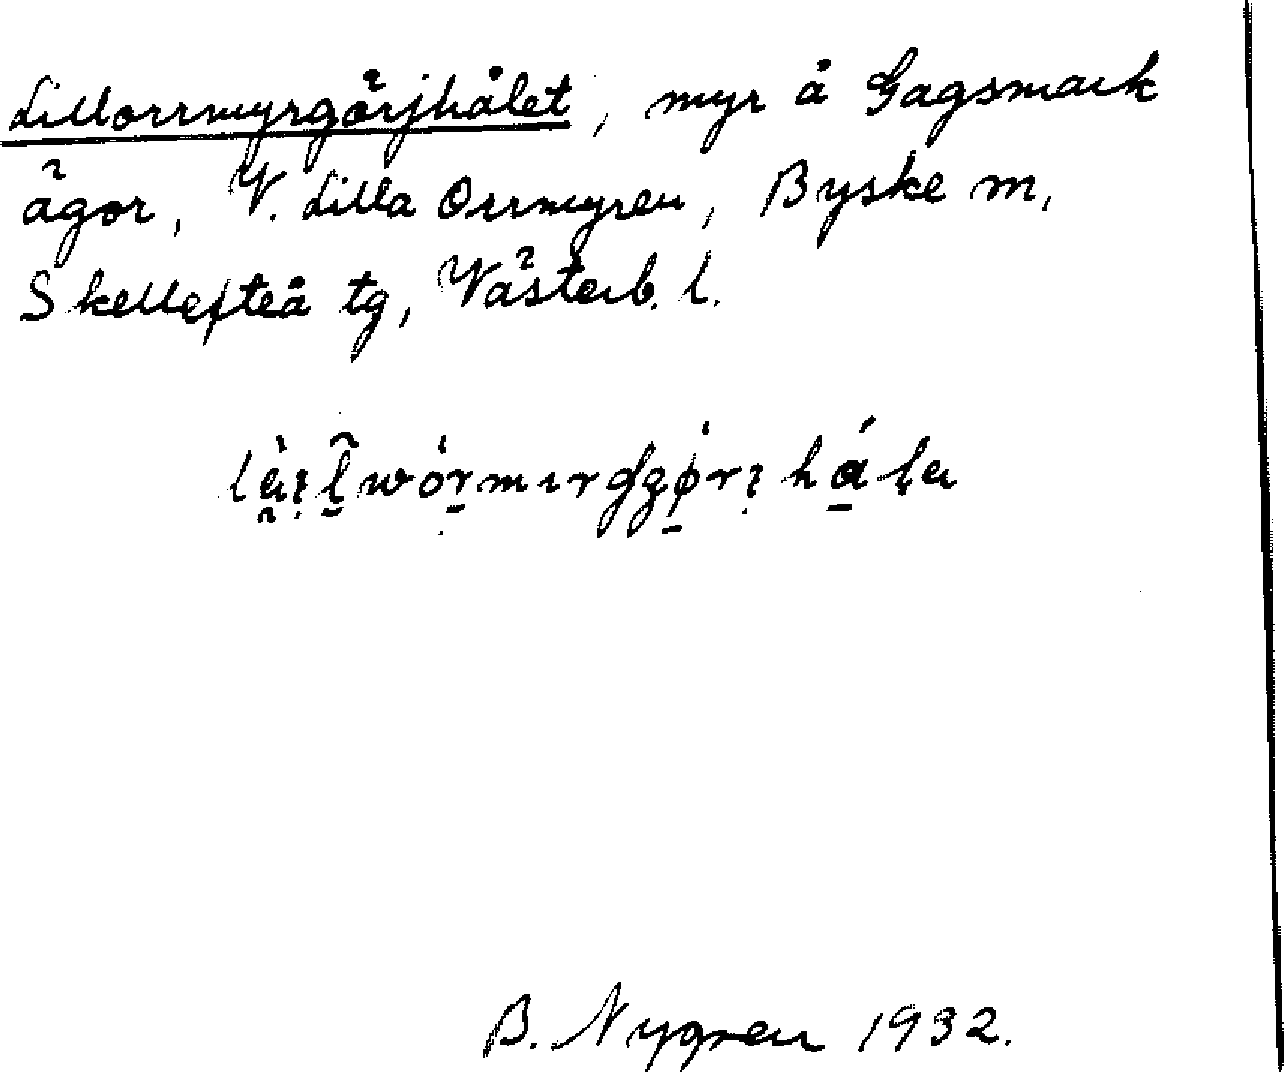 Lillorrmyrgärjhålet, myr å Gagsmark
ägor, V. Lilla Orrmyren, Byske sn,
Skellefteå tg, Västerb. l.
B. Nygren 1932.